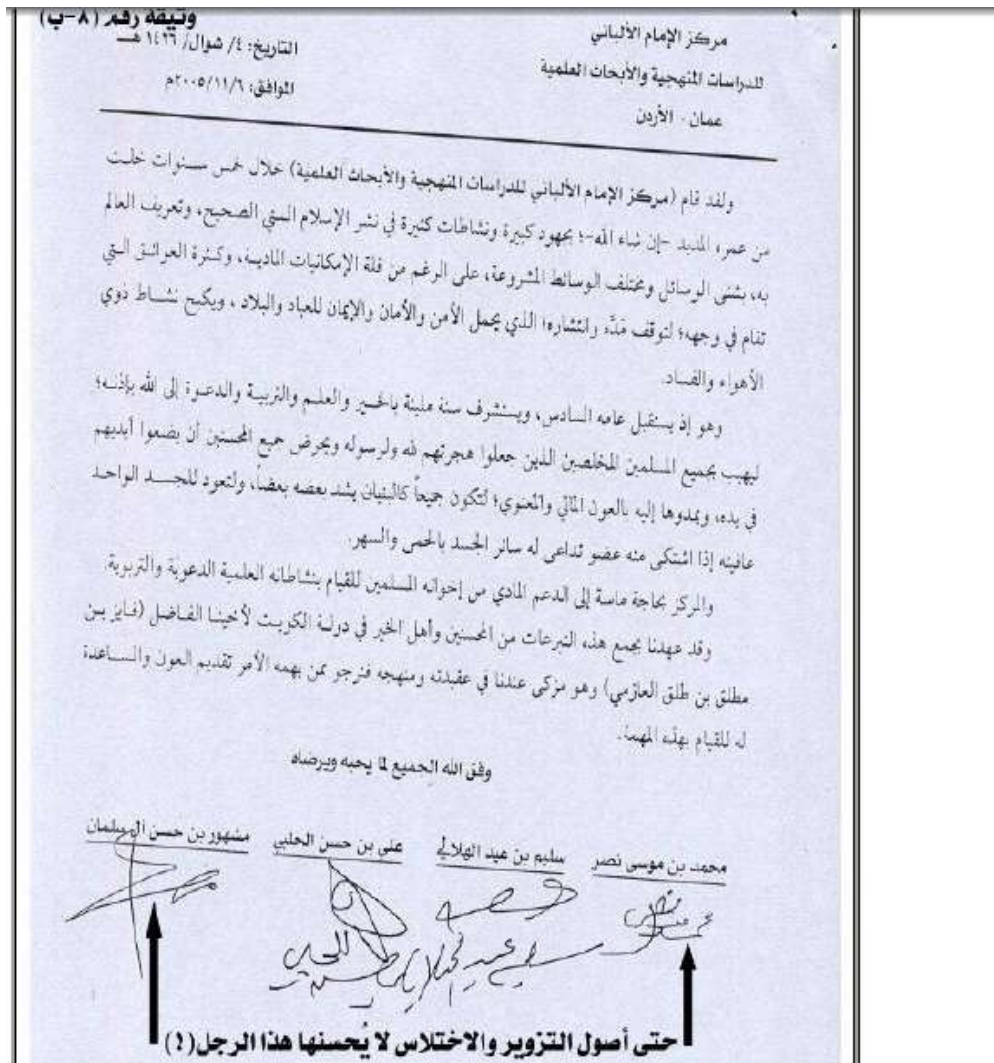 وثيقة رقم (٨-ب)
مركز الإمام الألباني
للدراسات المنهجية والأبحاث العلمية
عمان - الأردن
التاريخ: ٤/ شوال/ ١٤٢٦ هـ
الموافق: ٢٠٠٥/١١/٦م
ولقد قام (مركز الإمام الألباني للدراسات المنهجية والأبحاث العلمية) خلال خمس سنوات خلت
من عمره المديد -إن شاء الله-؛ بجهود كبيرة ونشاطات كثيرة في نشر الإسلام السني الصحيح، وتعريف العالم
به، بشتى الوسائل ومختلف الوسائط المشروعة، على الرغم من قلة الإمكانيات المادية، وكثرة العرائق التي
تقام في وجهه؛ لتوقف مَدَّه وانتشاره! الذي يحمل الأمن والأمان والإيمان للعباد والبلاد، ويكبح نشاط ذوي
الأهواء والفساد.
وهو إذ يستقبل عامه السادس، ويستشرف سنة مليئة بالخير والعلم والتربية والدعوة إلى الله بإذنه؛
ليهيب بجميع المسلمين المخلصين الذين جعلوا هجرتهم لله ولرسوله ويحرض جميع المحسنين أن يضعوا أيديهم
في يده، ويمدوها إليه بالعون المالي والمعنوي؛ لتكون جميعاً كالبنيان يشد بعضه بعضاً، ولتعود للجسد الواحد
عافيته إذا اشتكى منه عضو تداعى له سائر الجسد بالحمى والسهر.
والمركز بحاجة ماسة إلى الدعم المادي من إخوانه المسلمين للقيام بنشاطاته العلمية الدعوية والتربوية.
وقد عهدنا بجمع هذه التبرعات من المحسنين وأهل الخير في دولة الكويت لأخينا الفاضل (فايز بن
مطلق بن طلق العازمي) وهو مزكى عندنا في عقيدته ومنهجه فنرجو ممن يهمه الأمر تقديم العون والمساعدة
له للقيام بهذه المهمة.
وفق الله الجميع لما يحبه ويرضاه
محمد بن موسى نصر سليم بن عيد الهلالي علي بن حسن الحلبي مشهور بن حسن آل سلمان
حتى أصول التزوير والاختلاس لا يُحسنها هذا الرجل(!)